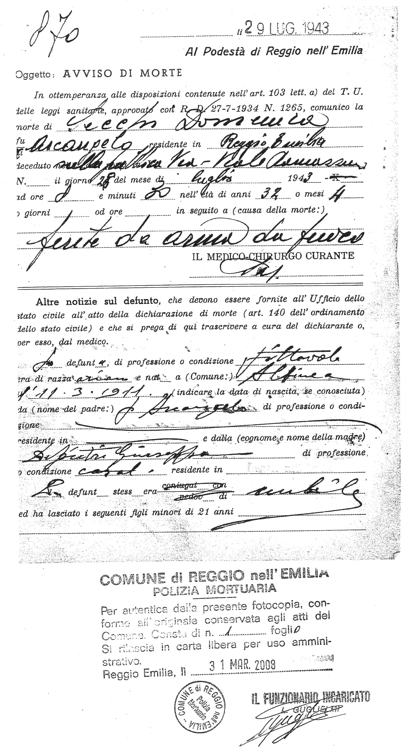 870
29 LUG. 1943
Al Podestà di Reggio nell'Emilia
Oggetto: AVVISO DI MORTE
In ottemperanza alle disposizioni contenute nell'art. 103 lett. a) del T. U.
delle leggi sanitarie, approvato con R. D. 27-7-1934 N. 1265, comunico la
morte di Secchi Domenica
fu Arcangelo residente in Reggio Emilia
deceduto nella pubblica Via - Viale
N. il giorno 28 del mese di luglio 1943
ad ore 8 e minuti 30 nell'età di anni 32 o mesi 4
o giorni od ore in seguito a (causa della morte:)
ferite da arma da fuoco
IL MEDICO-CHIRURGO CURANTE
Altre notizie sul defunto, che devono essere fornite all'Ufficio dello
stato civile all'atto della dichiarazione di morte (art. 140 dell'ordinamento
dello stato civile) e che si prega di qui trascrivere a cura del dichiarante o,
per esso, dal medico.
La defunta, di professione o condizione
era di razza ariana e nat a (Comune:) Albinea
l' 11.3.1911. (indicare la data di nascita, se conosciuta)
da (nome del padre:) fu Arcangelo di professione o condi-
sione
residente in e dalla (cognome e nome della madre)
Giuseppa di professione
o condizione casal. residente in
La defunt stess era coniugat con nubile
vedov di
ed ha lasciato i seguenti figli minori di 21 anni
COMUNE di REGGIO nell'EMILIA
POLIZIA MORTUARIA
Per autentica dalla presente fotocopia, con-
forme all'originale conservata agli atti del
Comune. Consta di n. 1 foglio
Si rilascia in carta libera per uso ammini-
strativo.
Reggio Emilia, lì 31 MAR. 2009
COMUNE di REGGIO nell'EMILIA
Polizia Mortuaria
IL FUNZIONARIO INCARICATO